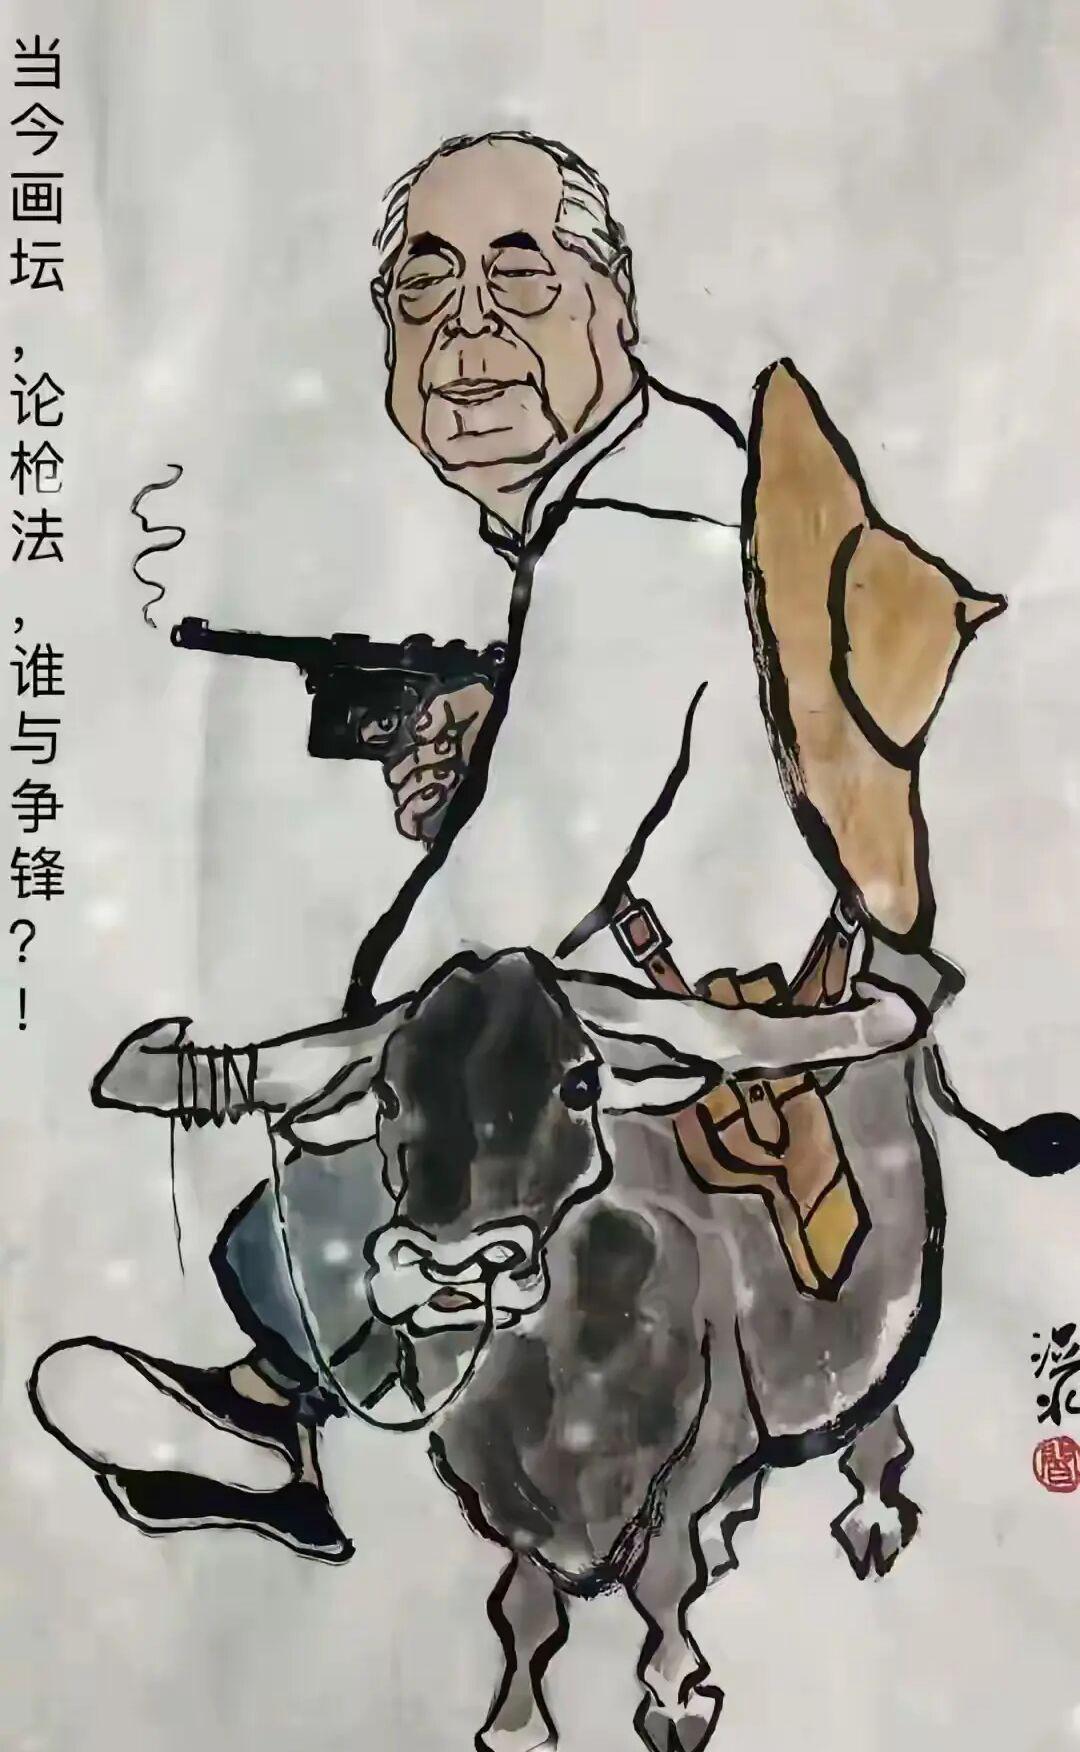 当今画坛，论枪法，谁与争锋？！